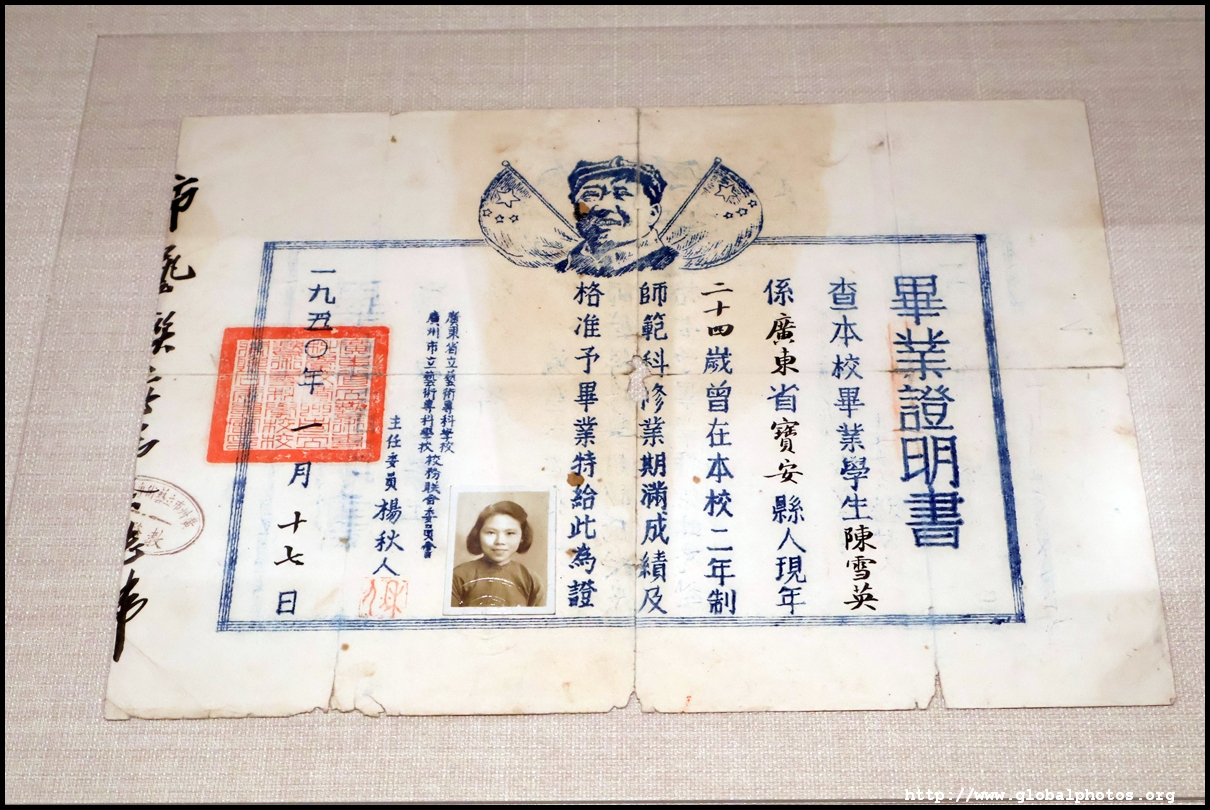 畢業證明書
查本校畢業學生陳雪英
係廣東省寶安縣人現年
二十四歲曾在本校二年制
師範科修業期滿成績及
格准予畢業特給此為證
廣東省立藝術專科學校
廣州市立藝術專科學校
校務聯合委員會
主任委員楊秋人
一九五〇年一月十七日
市藝
http://www.globalphotos.org